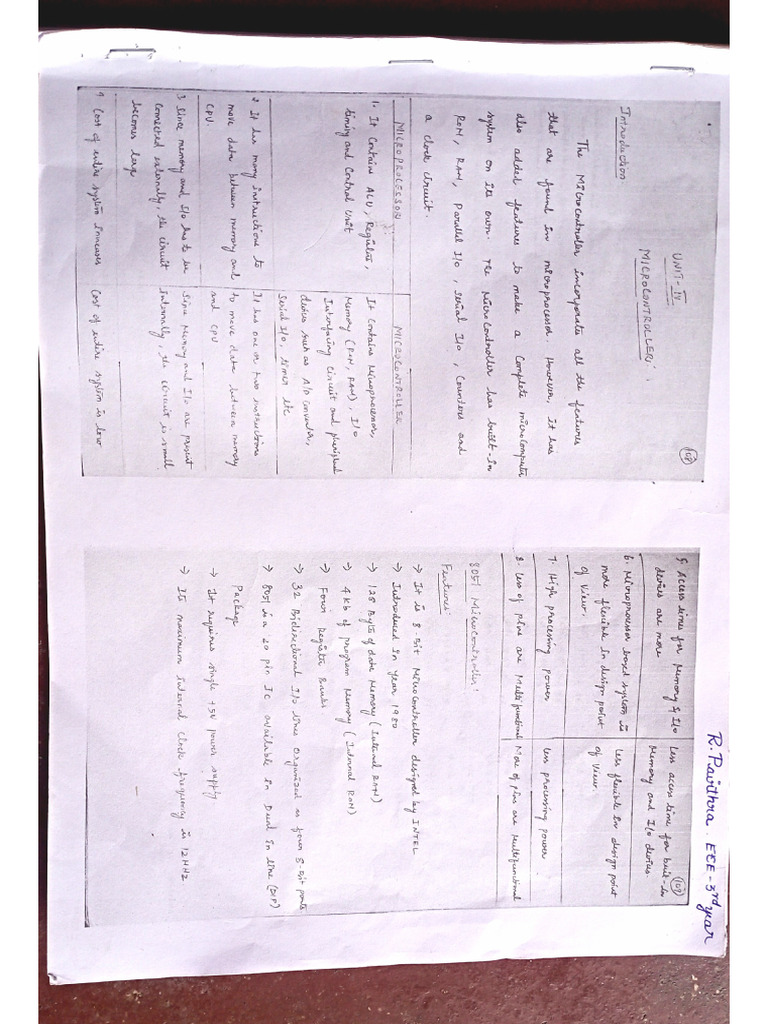 R. Pavithra ECE - 3rd year
107
UNIT - IV
MICROCONTROLLER
Introduction
The Microcontroller incorporates all the features
that are found in microprocessor. However, it has
also added features to make a Complete microcomputer
system on its own. The Microcontroller has built-in
ROM, RAM, Parallel I/O, Serial I/O, Counters and
a clock circuit.
MICROPROCESSOR
MICROCONTROLLER
1. It Contains ALU, Register,
timing and Control Unit
It Contains Microprocessor,
Memory (ROM, RAM), I/O
Interfacing Circuit and peripheral
devices such as A/D converter,
Serial I/O, timer etc
2. It has many instructions to
move data between memory and
CPU.
It has one or two instructions
to move data between memory
and CPU
3. Since memory and I/O has to be
connected externally, the circuit
becomes large
Since Memory and I/O are present
internally, the circuit is small
4. Cost of entire system increases
Cost of entire system is low
108
5. Access times for Memory & I/O
devices are more
Less access time for built-in
Memory and I/O devices.
6. Microprocessor based system is
more flexible in design point
of view.
Less flexible in design point
of view.
7. High processing power
Less processing power
8. Less of pins are Multifunctional
More of pins are Multifunctional
8051 Microcontroller:
Features:
→ It is 8-bit Microcontroller designed by INTEL
→ Introduced in year 1980
→ 128 Byte of data Memory (Internal RAM)
→ 4Kb of program Memory (Internal ROM)
→ Four Register Banks
→ 32 Bidirectional I/O lines organized as four 8-bit ports
→ 8051 is a 20 pin IC available in Dual in line (DIP)
package
→ It requires single +5V power supply
→ Its maximum internal clock frequency is 12MHz